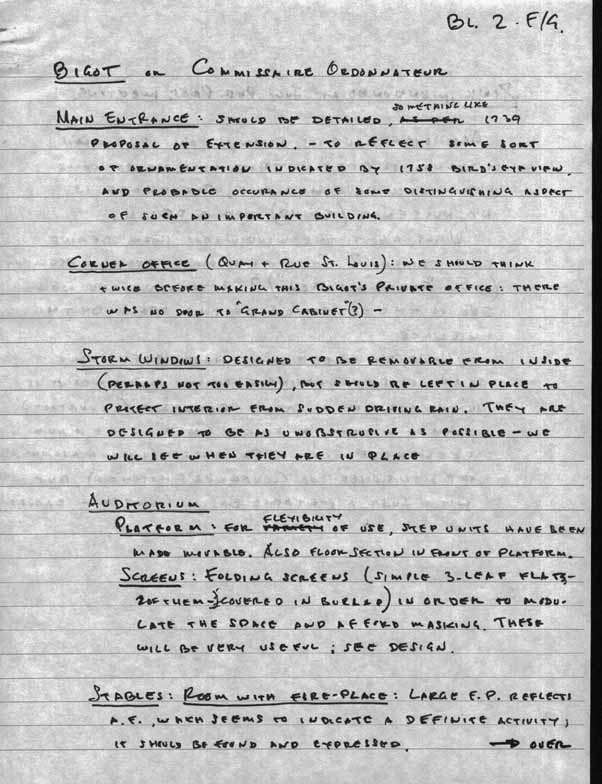 BL. 2 . F/G.
BIGOT OR COMMISSAIRE ORDONNATEUR
SOMETHING LIKE
MAIN ENTRANCE: SHOULD BE DETAILED, AS PER 1739
PROPOSAL OF EXTENSION. - TO REFLECT SOME SORT
OF ORNAMENTATION INDICATED BY 1758 BIRD'S EYE VIEW,
AND PROBABLE OCCURANCE OF SOME DISTINGUISHING ASPECT
OF SUCH AN IMPORTANT BUILDING.
CORNER OFFICE (QUAY + RUE ST. LOUIS): WE SHOULD THINK
TWICE BEFORE MAKING THIS BIGOT'S PRIVATE OFFICE: THERE
WAS NO DOOR TO "GRAND CABINET"(?) -
STORM WINDOWS: DESIGNED TO BE REMOVABLE FROM INSIDE
(PERHAPS NOT TOO EASILY), BUT SHOULD BE LEFT IN PLACE TO
PROTECT INTERIOR FROM SUDDEN DRIVING RAIN. THEY ARE
DESIGNED TO BE AS UNOBSTRUSIVE AS POSSIBLE - WE
WILL SEE WHEN THEY ARE IN PLACE
AUDITORIUM
FLEXIBILITY
PLATFORM: FOR VARIETY OF USE, STEP UNITS HAVE BEEN
MADE MOVABLE. ALSO FLOOR SECTION IN FRONT OF PLATFORM.
SCREENS: FOLDING SCREENS (SIMPLE 3-LEAF FLATS-
2 OF THEM - COVERED IN BURLAP) IN ORDER TO MODU-
LATE THE SPACE AND AFFORD MASKING. THESE
WILL BE VERY USEFUL; SEE DESIGN.
STABLES: ROOM WITH FIRE-PLACE: LARGE F.P. REFLECTS
A.F., WHICH SEEMS TO INDICATE A DEFINITE ACTIVITY;
IT SHOULD BE FOUND AND EXPRESSED. → OVER